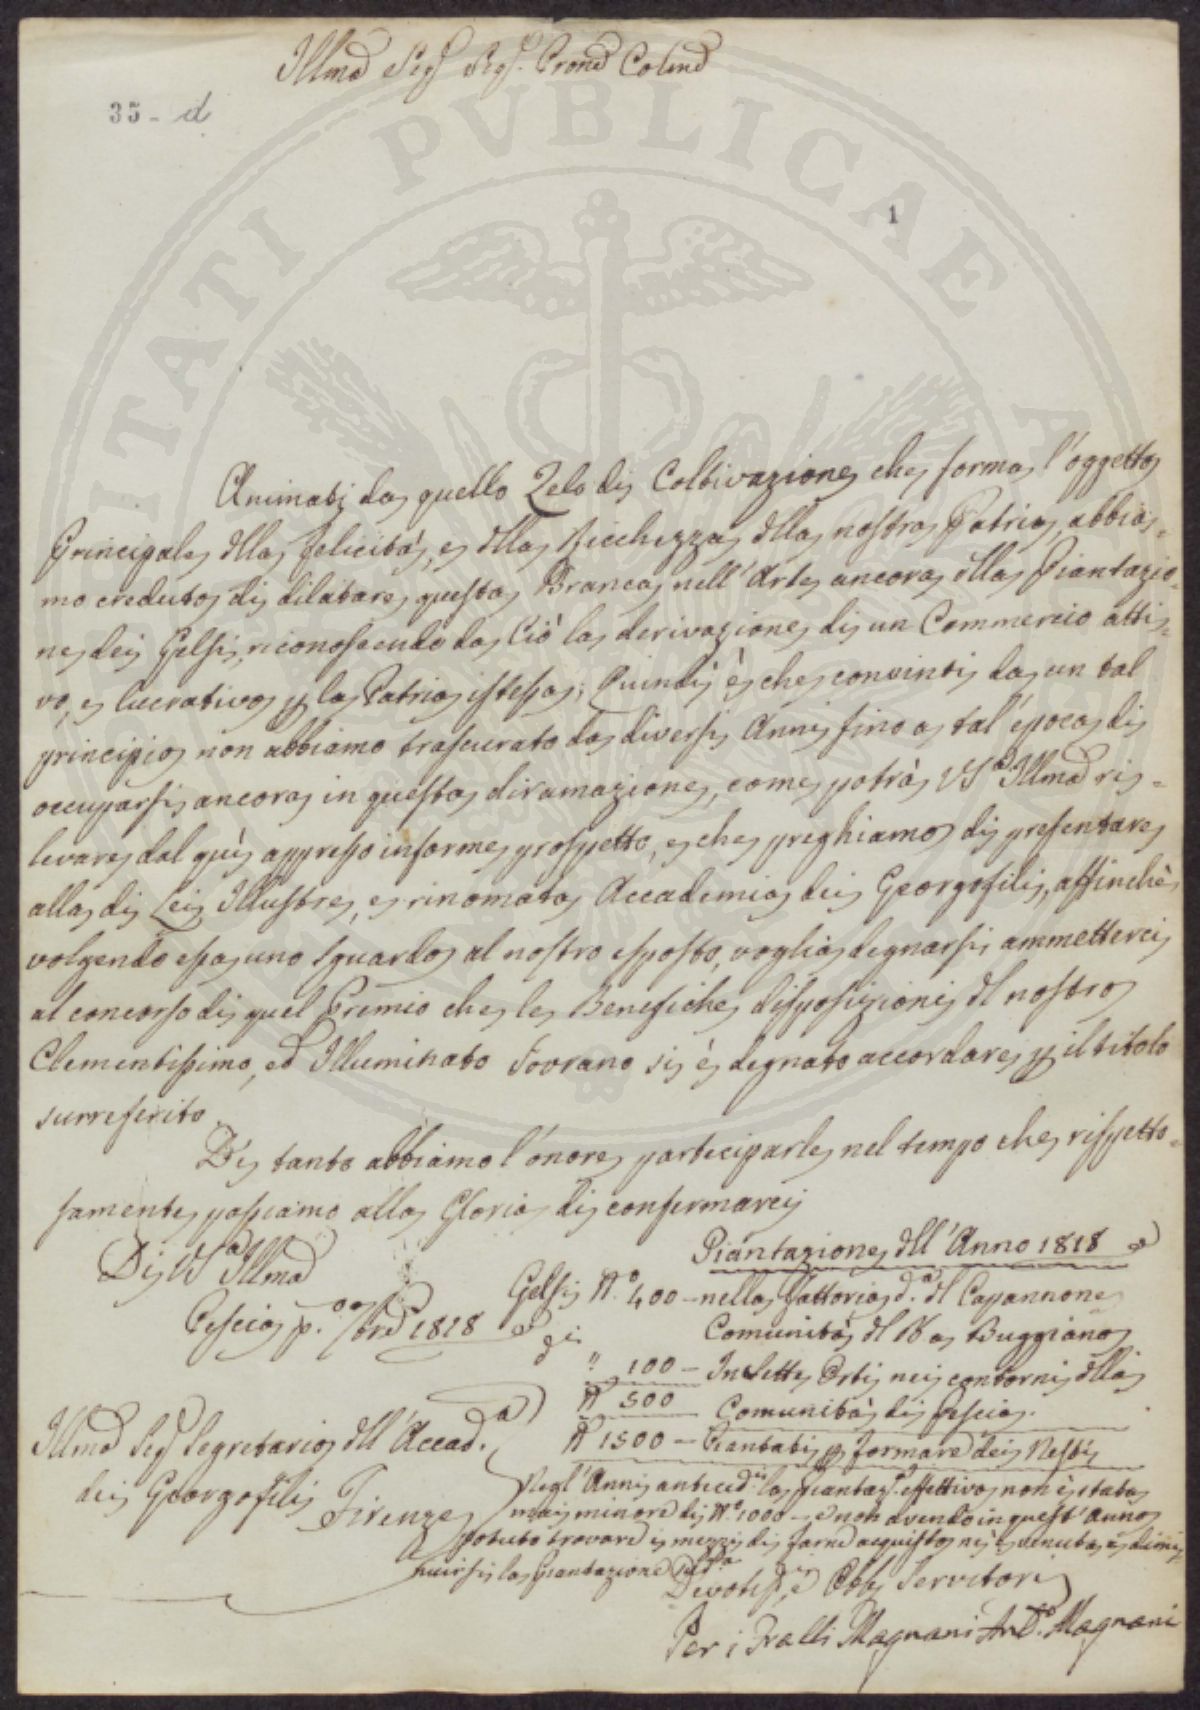 Illmo Sigr Sigr Prone Colmo
35 - d
1
Animati da quello Zelo di Coltivazione che forma l'oggetto
Principale dlla felicità, e dlla Ricchezza dlla nostra Patria, abbia=
mo creduto di dilatare questa Branca nell'Arte ancora dlla Piantazio=
ne dei Gelsi, riconoscendo da Ciò la derivazione di un Commercio atti=
vo, e lucrativo p la Patria istessa; Quindi è che convinti da un tal
principio non abbiamo trascurato da diversi Anni fino a tal'epoca di
occuparsi ancora in questa diramazione, come potrà VSa Illma ri=
levare dal quì appresso informe prospetto, e che preghiamo di presentare
alla di Lei Illustre, e rinomata Accademia dei Georgofili, affinchè
volgendo essa uno sguardo al nostro esposto, voglia degnarsi ammetterci
al concorso di quel Premio che le Benefiche disposizioni dl nostro
Clementissimo, ed Illuminato Sovrano si è degnato accordare p il titolo
surreferito.
Di tanto abbiamo l'onore participarle nel tempo che rispetto=
samente passiamo alla Gloria di confermarci
Di VSa Illma
Piantazione dll'Anno 1818
Gelsi No 400 - nella Fattoria da dl Capannone
Pescia p. 1818
Comunità dl Buggiano
" 100 - In sette Orti nei contorni dlla
N 500 Comunità di Pescia.
Illmo Sigr Segretario dll'Accada
N 1500 - Piantati p formare dei Nesti
dei Georgofili Firenze
Negl'Anni anteced.ti la piantaz.e effettiva non è stata
mai minore di No 1000 - e non avendo in quest'Anno
potuto trovare i mezzi di farne acquisto ne è venuta a dimi=
nuirsi la Piantazione sudda
Devotis.i e Obbi Servitori
Per i Fratlli Magnani Anto Magnani